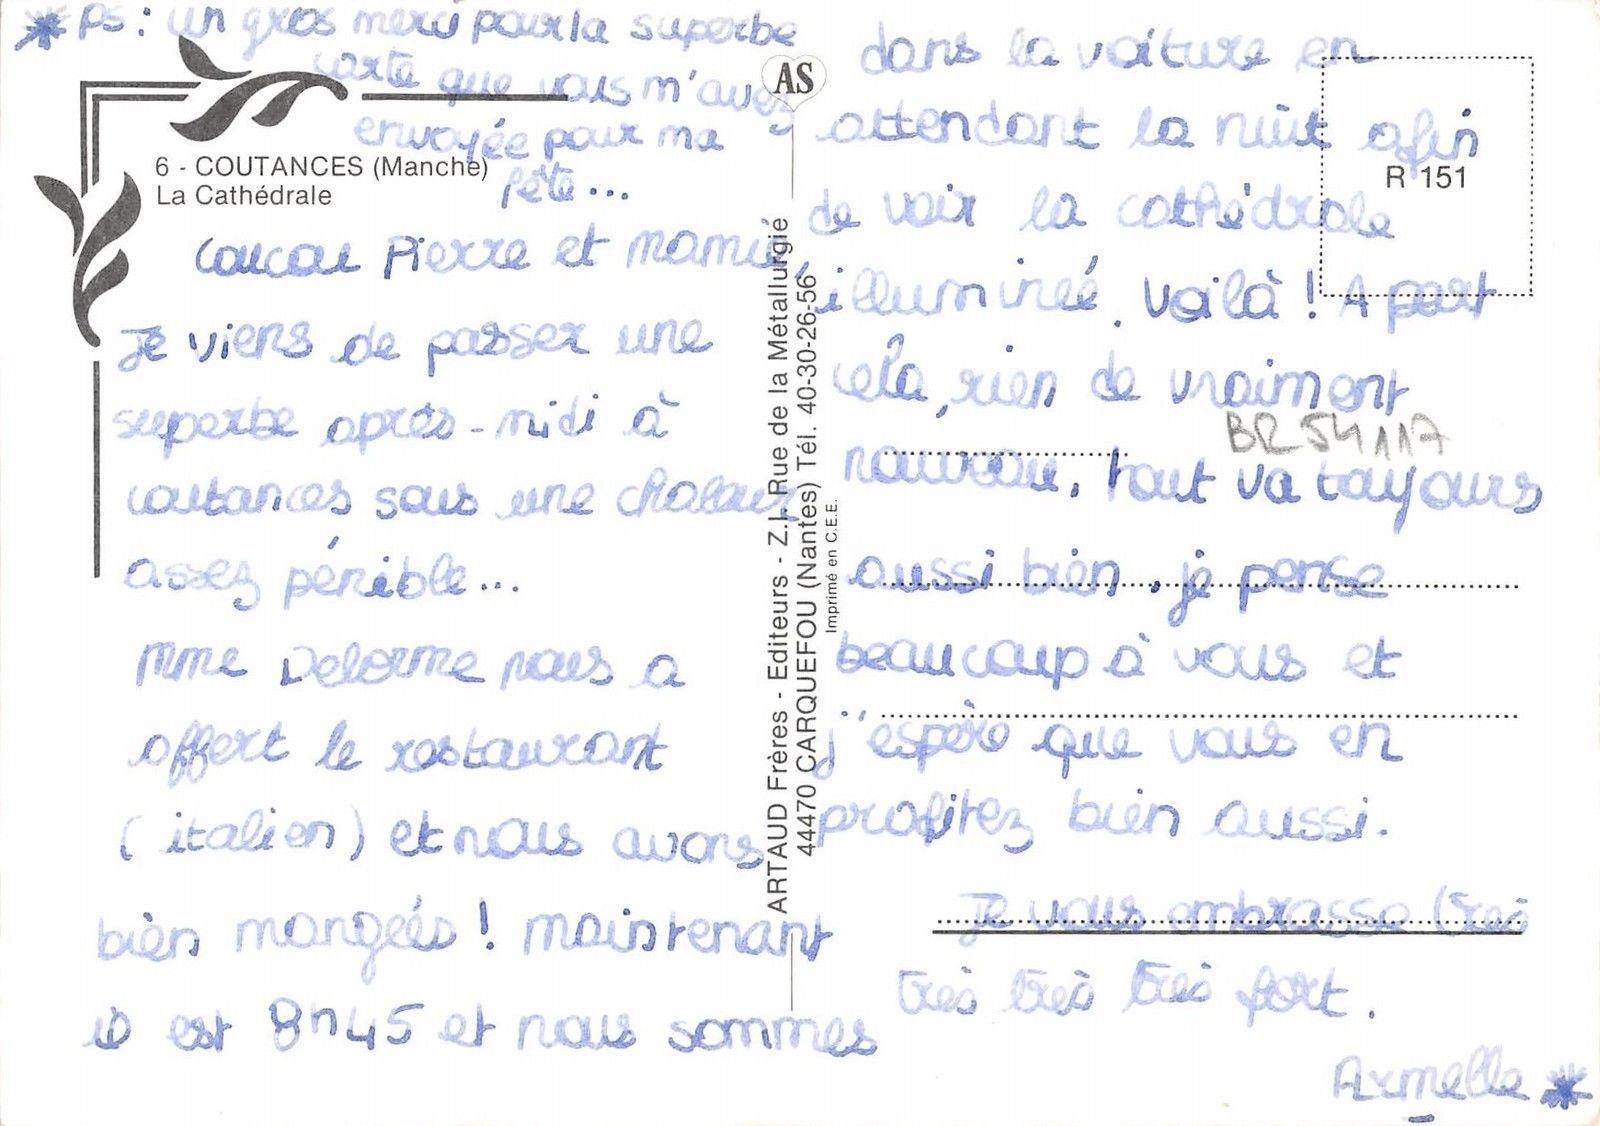 * PS : un gros merci pour la superbe
carte que vous m'avez
envoyée pour ma
fête...
AS
6 - COUTANCES (Manche)
La Cathédrale
R 151
Coucou Pierre et mamie,
Je viens de passer une
superbe après-midi à
coutances sous une chaleur
assez pénible...
Mme Delorme nous a
offert le restaurant
(italien) et nous avons
bien mangées ! maintenant
il est 8h45 et nous sommes
ARTAUD Frères - Editeurs - Z.I. Rue de la Métallurgie
44470 CARQUEFOU (Nantes) Tél. 40-30-26-56
Imprimé en C.E.E.
dans la voiture en
attendant la nuit afin
de voir la cathédrale
illuminée. Voilà ! A part
cela, rien de vraiment
BR 54117
nouveau, tout va toujours
aussi bien. je pense
beaucoup à vous et
j'espère que vous en
profitez bien aussi.
Je vous embrasse très
très très très fort.
Armelle *